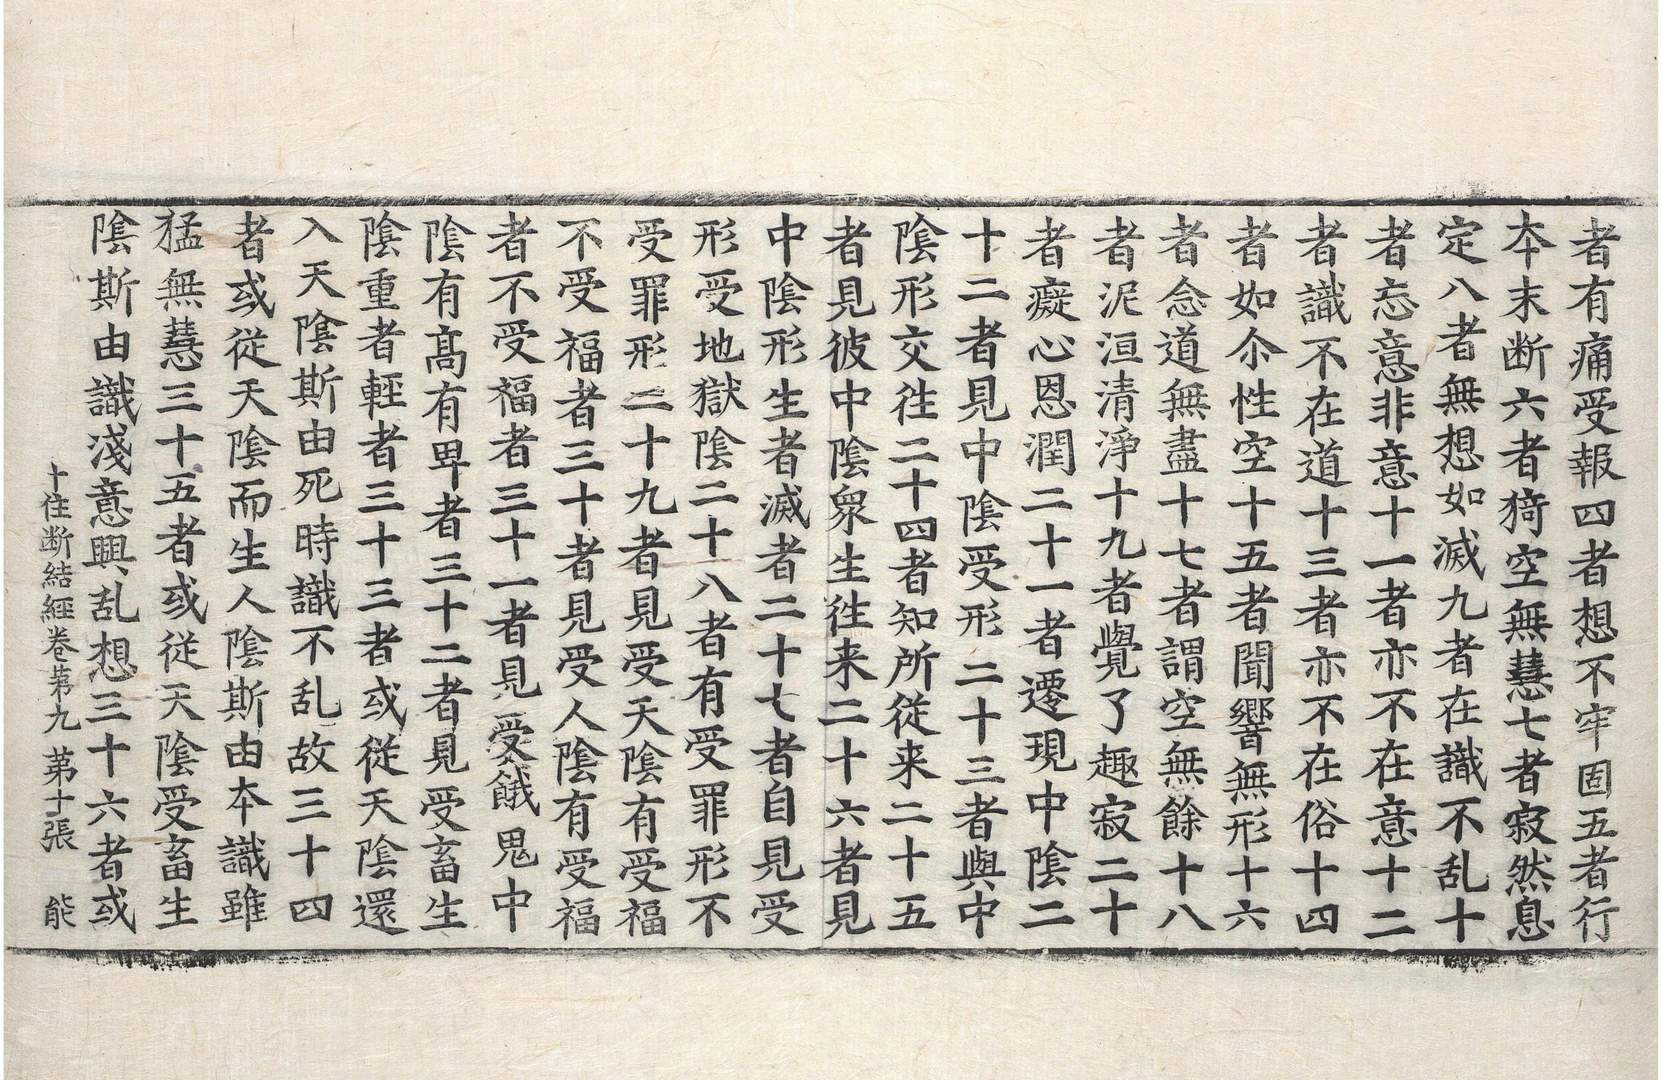 者有痛受報四者想不牢固五者行
本末断六者猗空無慧七者寂然息
定八者無想如滅九者在識不乱十
者忘意非意十一者亦不在意十二
者識不在道十三者亦不在俗十四
者如尒性空十五者聞響無形十六
者念道無盡十七者謂空無餘十八
者泥洹清淨十九者覺了趣寂二十
者癡心恩潤二十一者遷現中陰二
十二者見中陰受形二十三者與中
陰形交往二十四者知所從来二十五
者見彼中陰衆生往来二十六者見
中陰形生者滅者二十七者自見受
形受地獄陰二十八者有受罪形不
受罪形二十九者見受天陰有受福
不受福者三十者見受人陰有受福
者不受福者三十一者見受餓鬼中
陰有髙有卑者三十二者見受畜生
陰重者輕者三十三者或從天陰還
入天陰斯由死時識不乱故三十四
者或從天陰而生人陰斯由本識雖
猛無慧三十五者或從天陰受畜生
陰斯由識淺意興乱想三十六者或
十住断結經卷第九 第十張 能